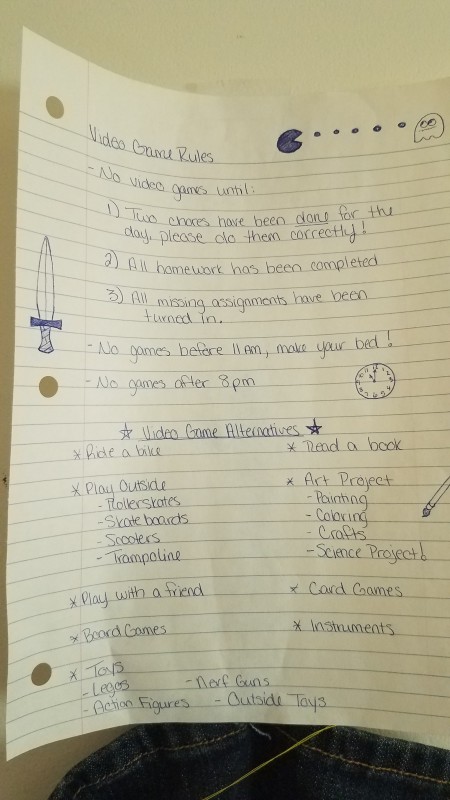 Video Game Rules
- No video games until:
1) Two chores have been done for the
day, please do them correctly!
2) All homework has been completed
3) All missing assignments have been
turned in.
- No games before 11 AM, make your bed!
- No games after 8pm
☆ Video Game Alternatives ☆
* Ride a bike
* Play Outside
- Rollerskates
- Skateboards
- Scooters
- Trampoline
* Play with a friend
* Board Games
* Toys
- Legos
- Action Figures
- Nerf Guns
- Outside Toys
* Read a book
* Art Project
- Painting
- Coloring
- Crafts
- Science Project!
* Card Games
* Instruments